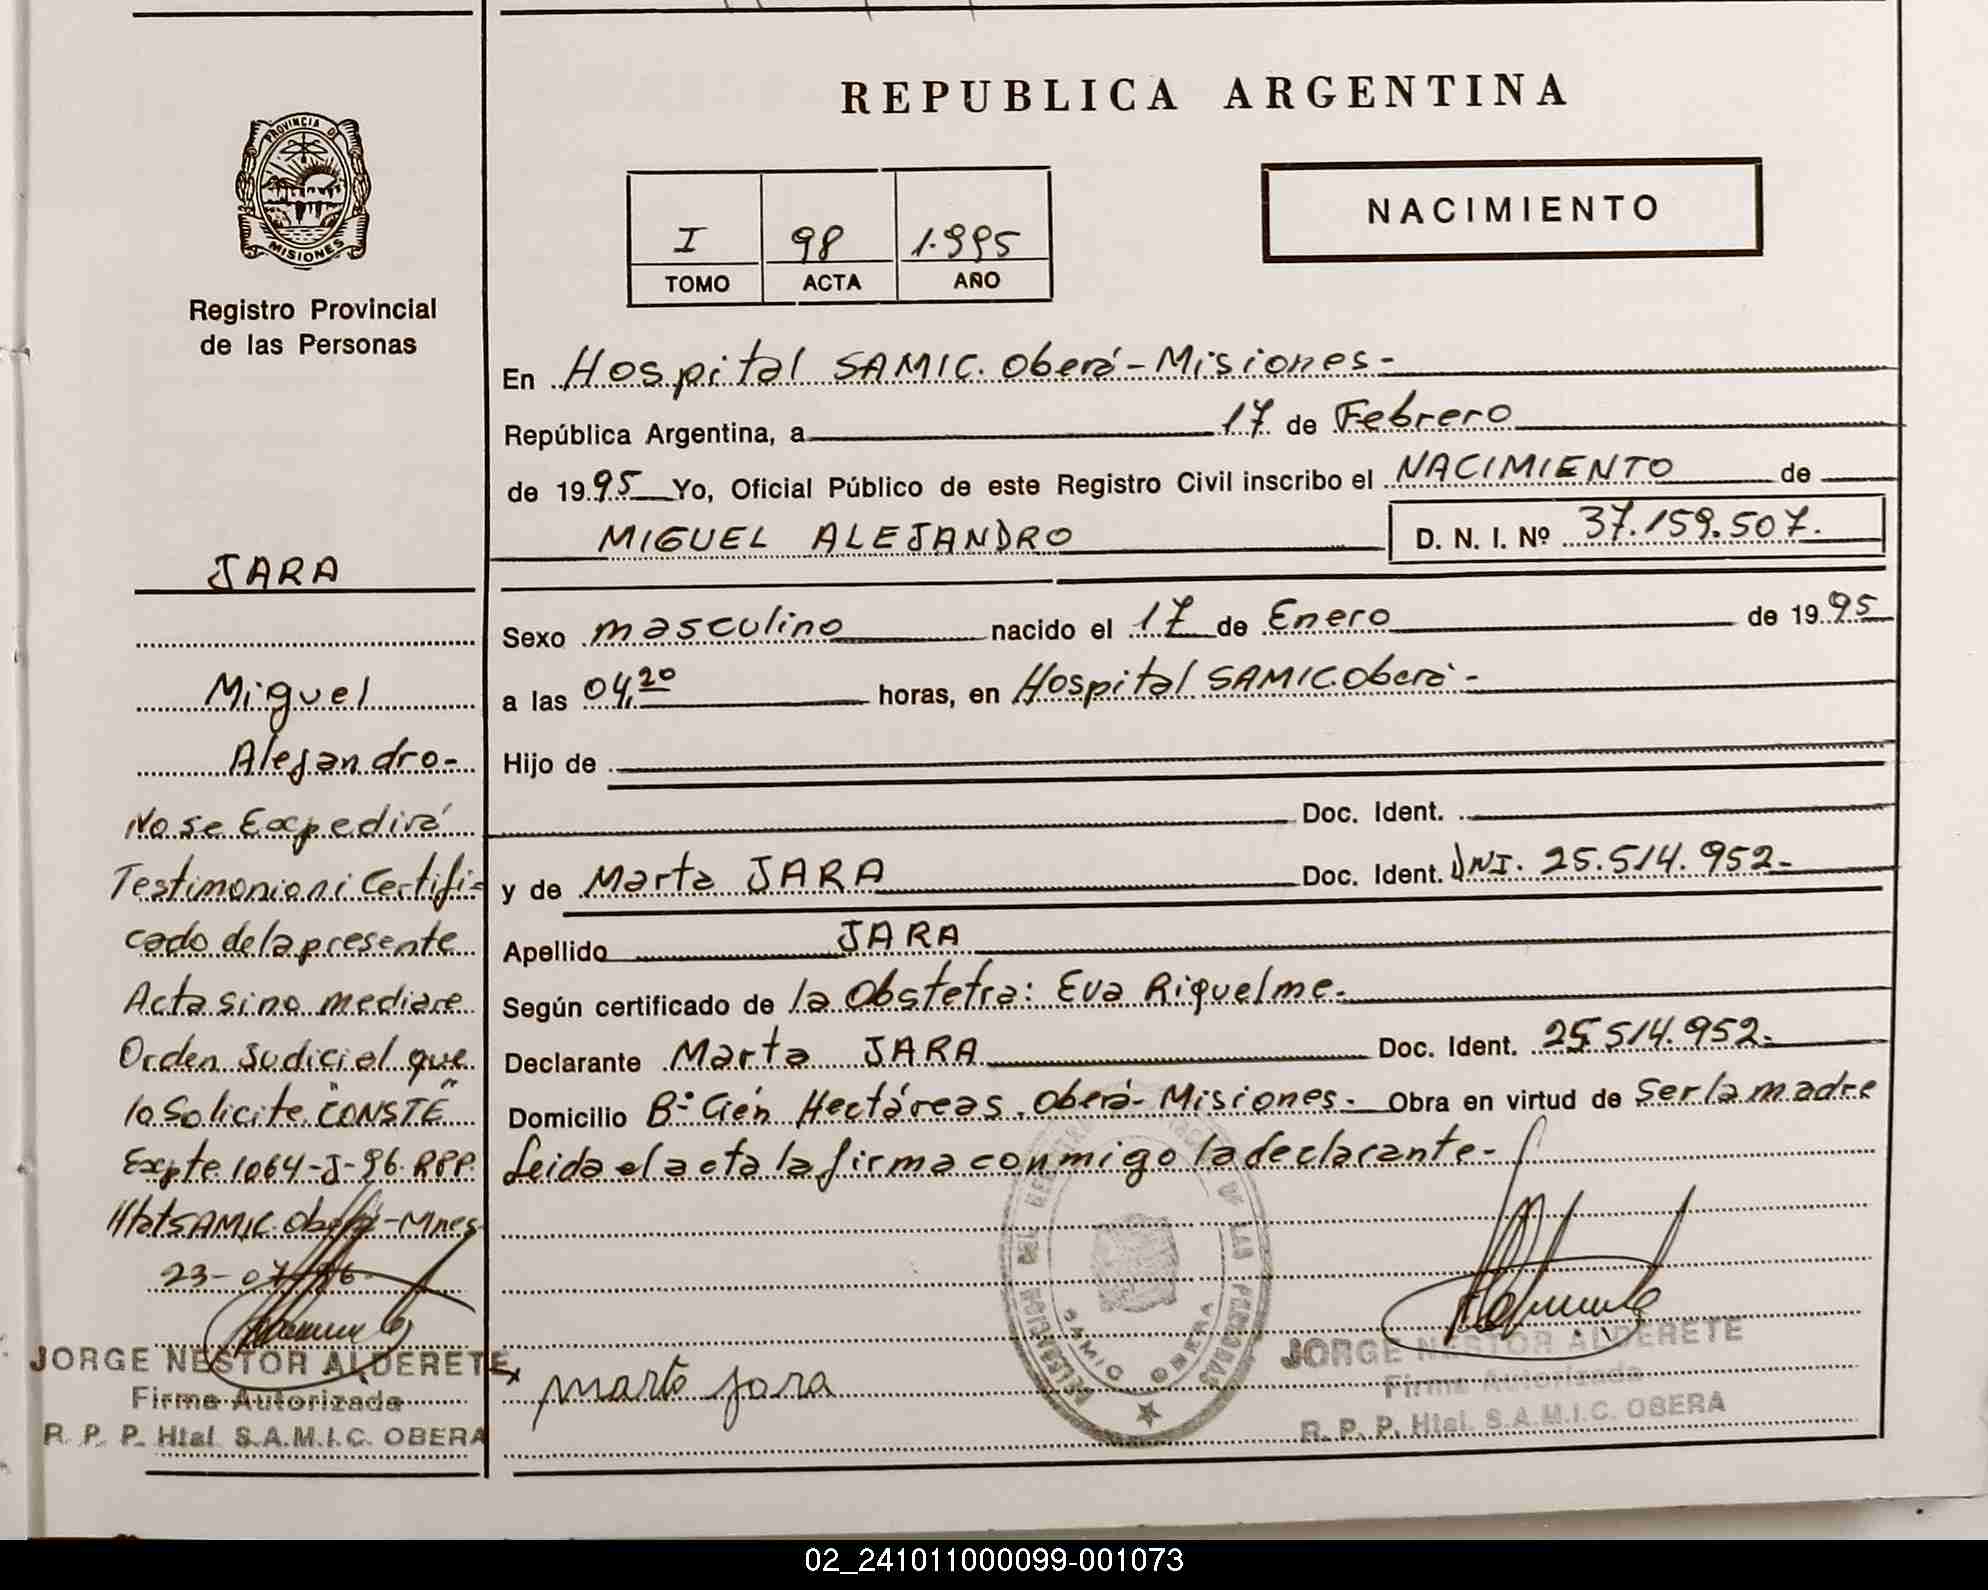 REPUBLICA ARGENTINA
PROVINCIA DE
MISIONES
Registro Provincial
de las Personas
I 98 1.995
TOMO ACTA AÑO
NACIMIENTO
En Hospital SAMIC. Oberá - Misiones -
República Argentina, a 17 de Febrero
de 1995 Yo, Oficial Público de este Registro Civil inscribo el NACIMIENTO de
MIGUEL ALEJANDRO D. N. I. Nº 37.159.507.
Sexo masculino nacido el 17 de Enero de 1995
a las 04,20 horas, en Hospital SAMIC Oberá -
Hijo de
Doc. Ident.
y de Marta JARA Doc. Ident. DNI. 25.514.952-
Apellido JARA
Según certificado de la Obstetra: Eva Riquelme.
Declarante Marta JARA Doc. Ident. 25.514.952-
Domicilio Bº Cién Hectáreas. Oberá - Misiones - Obra en virtud de Ser la madre
Leida el acta la firma conmigo la declarante-
marta jara
JORGE NESTOR ALDERETE
Firma Autorizada
R. P. P. Htal. S.A.M.I.C. OBERA
JARA
Miguel
Alejandro-
No se Expedirá
Testimonio ni Certifi-
cado de la presente
Acta sino mediare
Orden Judicial que
lo Solicite. "CONSTE"
Expte. 1064-J-96. RPP.
Htal SAMIC. Oberá - Mnes
23-07-96-
JORGE NESTOR ALDERETE
Firma Autorizada
R. P. P. Htal. S.A.M.I.C. OBERA
02_241011000099-001073